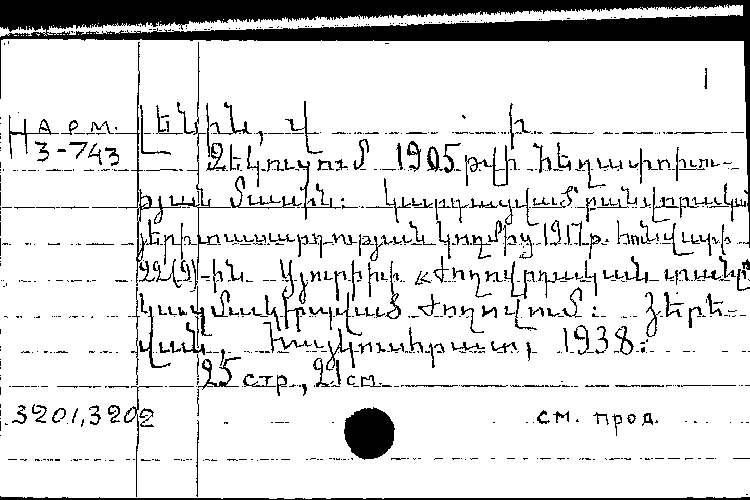 1
Н АРМ. Լենին, Վ. Ի.
3-743 Զեկուցում 1905 թվի հեղափոխու-
թյան մասին: Կարդացված բանվորական
յերիտասարդության կողմից 1917 թ. հունվարի
22(9)-ին Ցյուրիխի «Ժողովրդական տանը»
կազմակերպված ժողովում: Յերե-
վան, Հայկուսհրատ, 1938:
25 стр., 21 см.
3201,3202 см. прод.